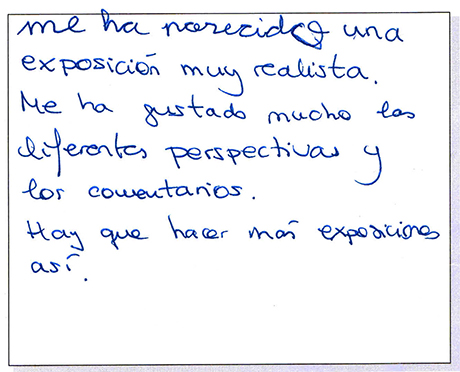 me ha parecido una
exposición muy realista.
Me ha gustado mucho las
diferentes perspectivas y
los comentarios.
Hay que hacer más exposiciones
así.